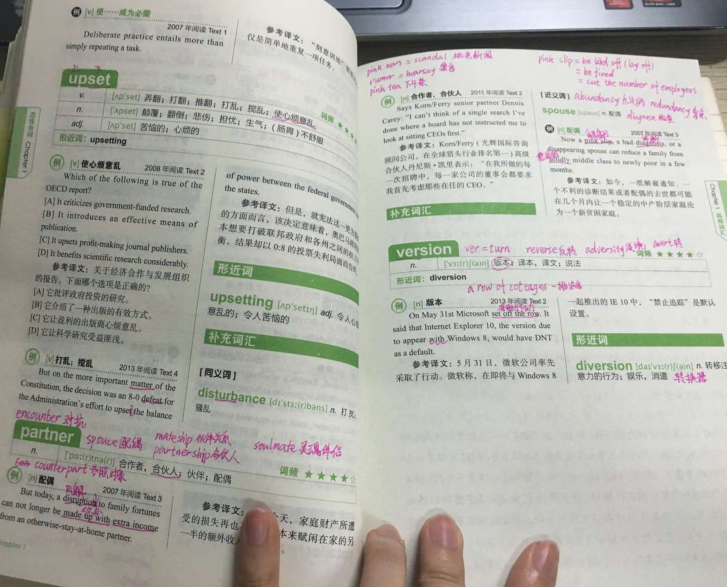 例 [v] 使……成为必需
2007 年阅读 Text 1
Deliberate practice entails more than
simply repeating a task.
参考译文：“刻意训练”
仅是简单地重复一项任务。
upset
v. [ʌp'set] 弄翻；打翻；推翻；打乱；搅乱；使心烦意乱
n. ['ʌpset] 颠覆；翻倒；悲伤；担忧；生气；（肠胃）不舒服
adj. [ʌp'set] 苦恼的；心烦的
形近词：upsetting
例 [v] 使心烦意乱
2008 年阅读 Text 2
Which of the following is true of the
OECD report?
[A] It criticizes government-funded research.
[B] It introduces an effective means of
publication.
[C] It upsets profit-making journal publishers.
[D] It benefits scientific research considerably.
参考译文：关于经济合作与发展组织
的报告，下面哪个选项是正确的？
[A] 它批评政府投资的研究。
[B] 它介绍了一种出版的有效方式。
[C] 它让盈利的出版商心烦意乱。
[D] 它让科学研究受益匪浅。
例 [v] 打乱；搅乱
2013 年阅读 Text 4
But on the more important matter of the
Constitution, the decision was an 8-0 defeat for
the Administration's effort to upset the balance
of power between the federal government
the states.
参考译文：但是，就宪法这一更为
的方面而言，该决定意味着，奥巴马政府
本想要打破联邦政府和各州之间的
衡，结果却以 0:8 的投票失利局面
形近词
upsetting [ʌp'setɪŋ] adj. 令人心烦
意乱的；令人苦恼的
补充词汇
【同义词】
disturbance [dɪ'stɜː(r)bəns] n. 打扰
骚乱
encounter 对抗
partner spouse 配偶 mateship 伙伴关系
partnership 合伙人 soulmate 灵魂伴侣
n. ['pɑː(r)tnə(r)] 合作者，合伙人；伙伴；配偶
词频 ★★★★
counterpart
例 [n] 配偶
2007 年阅读 Text 3
But today, a disruption to family fortunes
can not longer be made up with extra income
from an otherwise-stay-at-home partner.
参考译文：今天，家庭财产所遭
受的损失再也
本来赋闲在家的另
一半的额外收
Chapter 1
pink news = scandal 桃色新闻
rumor = hearsay 谣言
pink tea 下午茶
pink slip = be laid off (lay off)
= be fired
= cut the number of employees
例 [n] 合作者，合伙人 2011 年阅读 Text 2
Says Korn/Ferry senior partner Dennis
Carey: "I can't think of a single search I've
done where a board has not instructed me to
look at sitting CEOs first."
参考译文：Korn/Ferry（光辉国际咨询
顾问公司，在全球猎头行业排名第一）高级
合伙人丹尼斯·凯里表示：“在我所做的每
一次招聘中，每一家公司的董事会都要求
我首先考虑那些在任的 CEO。”
【近义词】 abundancy redundancy
spouse n. 配偶 diagnose
例 [n] 配偶
2007 年阅读 Text 3
Now a pink slip, a bad diagnosis, or a
disappearing spouse can reduce a family from
solidly middle class to newly poor in a few
months.
参考译文：如今，一纸解雇通知，一
个不利的诊断结果或者配偶的去世都可能
在几个月内让一个稳定的中产阶层家庭沦
为一个新贫困家庭。
补充词汇
version ver = turn reverse 反转 adversity
词频 ★★★★☆
n. ['vɜː(r)ʃ(ə)n] 版本；译本，译文；说法
形近词：diversion
a row of cottages
例 [n] 版本
2013 年阅读 Text 2
On May 31st Microsoft set off the row. It
said that Internet Explorer 10, the version due
to appear with Windows 8, would have DNT
as a default.
参考译文：5 月 31 日，微软公司率先
采取了行动。微软称，在即将与 Windows 8
一起推出的 IE 10 中，“禁止追踪”是默认
设置。
形近词
diversion [daɪ'vɜː(r)ʃ(ə)n] n. 转移注
意力的行为；娱乐，消遣 转换器